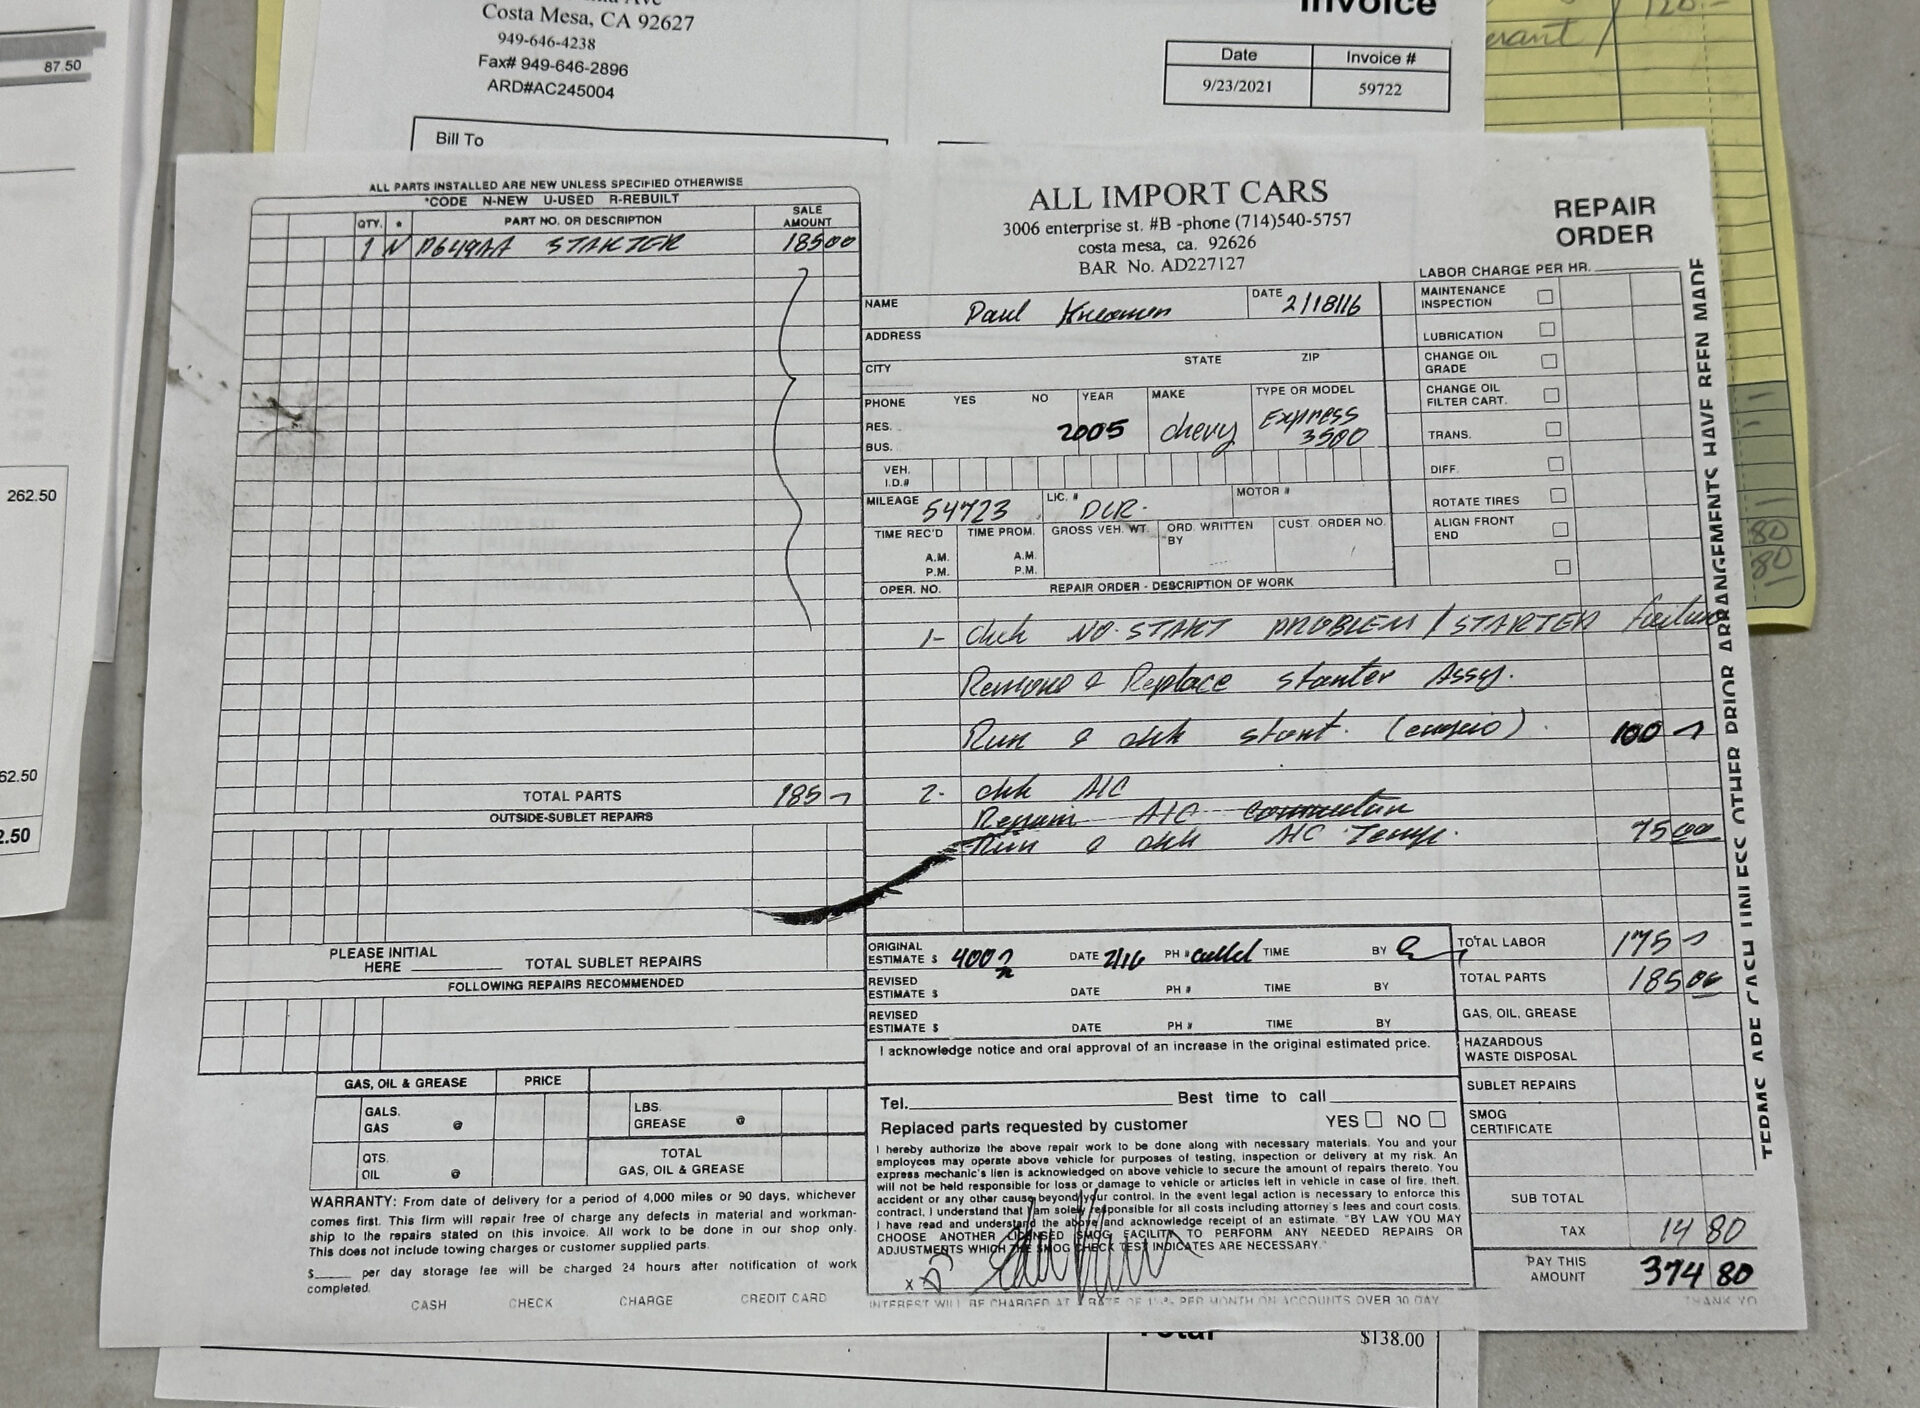 Costa Mesa, CA 92627
949-646-4238
Fax# 949-646-2896
ARD#AC245004
Bill To
Invoice
Date Invoice #
9/23/2021 59722
120.-
87.50
262.50
62.50
2.50
80
80
ALL PARTS INSTALLED ARE NEW UNLESS SPECIFIED OTHERWISE
*CODE N-NEW U-USED R-REBUILT
QTY. * PART NO. OR DESCRIPTION SALE AMOUNT
1 N STARTER 185 00
TOTAL PARTS 185
OUTSIDE-SUBLET REPAIRS
PLEASE INITIAL
HERE TOTAL SUBLET REPAIRS
FOLLOWING REPAIRS RECOMMENDED
GAS, OIL & GREASE PRICE
GALS.
GAS @
LBS.
GREASE @
QTS.
OIL @
TOTAL
GAS, OIL & GREASE
WARRANTY: From date of delivery for a period of 4,000 miles or 90 days, whichever
comes first. This firm will repair free of charge any defects in material and workman-
ship to the repairs stated on this invoice. All work to be done in our shop only.
This does not include towing charges or customer supplied parts.
$ per day storage fee will be charged 24 hours after notification of work
completed.
CASH CHECK CHARGE CREDIT CARD
ALL IMPORT CARS
3006 enterprise st. #B -phone (714)540-5757
costa mesa, ca. 92626
BAR No. AD227127
REPAIR
ORDER
NAME Paul DATE 2/18/16
ADDRESS
CITY STATE ZIP
PHONE YES NO YEAR MAKE TYPE OR MODEL
RES.
BUS.
2005 Chevy Express
3500
VEH.
I.D.#
MILEAGE 54723 LIC. # DLR. MOTOR #
TIME REC'D TIME PROM. GROSS VEH. WT. ORD. WRITTEN BY CUST. ORDER NO.
A.M. A.M.
P.M. P.M.
OPER. NO. REPAIR ORDER - DESCRIPTION OF WORK
LABOR CHARGE PER HR.
MAINTENANCE
INSPECTION
LUBRICATION
CHANGE OIL
GRADE
CHANGE OIL
FILTER CART.
TRANS.
DIFF.
ROTATE TIRES
ALIGN FRONT
END
1- chk NO-START PROBLEM / STARTER failure
Remove & Replace starter Assy.
Run & chk start. 100
2- chk A/C
Repair A/C
Run & chk A/C Temp. 75 00
ORIGINAL
ESTIMATE $ 400 DATE 2/16 PH # called TIME BY
REVISED
ESTIMATE $ DATE PH # TIME BY
REVISED
ESTIMATE $ DATE PH # TIME BY
I acknowledge notice and oral approval of an increase in the original estimated price.
Tel. Best time to call
Replaced parts requested by customer YES NO
I hereby authorize the above repair work to be done along with necessary materials. You and your
employees may operate above vehicle for purposes of testing, inspection or delivery at my risk. An
express mechanic's lien is acknowledged on above vehicle to secure the amount of repairs thereto. You
will not be held responsible for loss or damage to vehicle or articles left in vehicle in case of fire, theft,
accident or any other cause beyond your control. In the event legal action is necessary to enforce this
contract, I understand that I am solely responsible for all costs including attorney's fees and court costs.
I have read and understand the above and acknowledge receipt of an estimate. "BY LAW YOU MAY
CHOOSE ANOTHER LICENSED SMOG FACILITY TO PERFORM ANY NEEDED REPAIRS OR
ADJUSTMENTS WHICH THE SMOG CHECK TEST INDICATES ARE NECESSARY."
X
INTEREST WILL BE CHARGED AT A RATE OF 1½% PER MONTH ON ACCOUNTS OVER 30 DAY
TOTAL LABOR 175
TOTAL PARTS 185 00
GAS, OIL, GREASE
HAZARDOUS
WASTE DISPOSAL
SUBLET REPAIRS
SMOG
CERTIFICATE
SUB TOTAL
TAX 14 80
PAY THIS
AMOUNT 374 80
THANK YO
TERMS ARE CASH UNLESS OTHER PRIOR ARRANGEMENTS HAVE BEEN MADE
Total $138.00